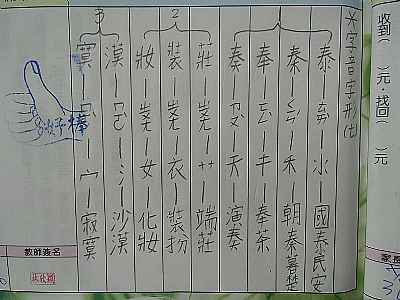 收到( )元,找回( )元
※字音字形(七)
泰—ㄊㄞˋ—氺—國泰民安
秦—ㄑㄧㄣˊ—禾—朝秦暮楚
奉—ㄈㄥˋ—キ—奉茶
奏—ㄗㄡˋ—天—演奏
2
莊—ㄓㄨㄤ—艹—端莊
裝—ㄓㄨㄤ—衣—裝扮
妝—ㄓㄨㄤ—女—化妝
3
漠—ㄇㄛˋ—氵—沙漠
寞—ㄇㄛˋ—宀—寂寞
好棒
教師簽名